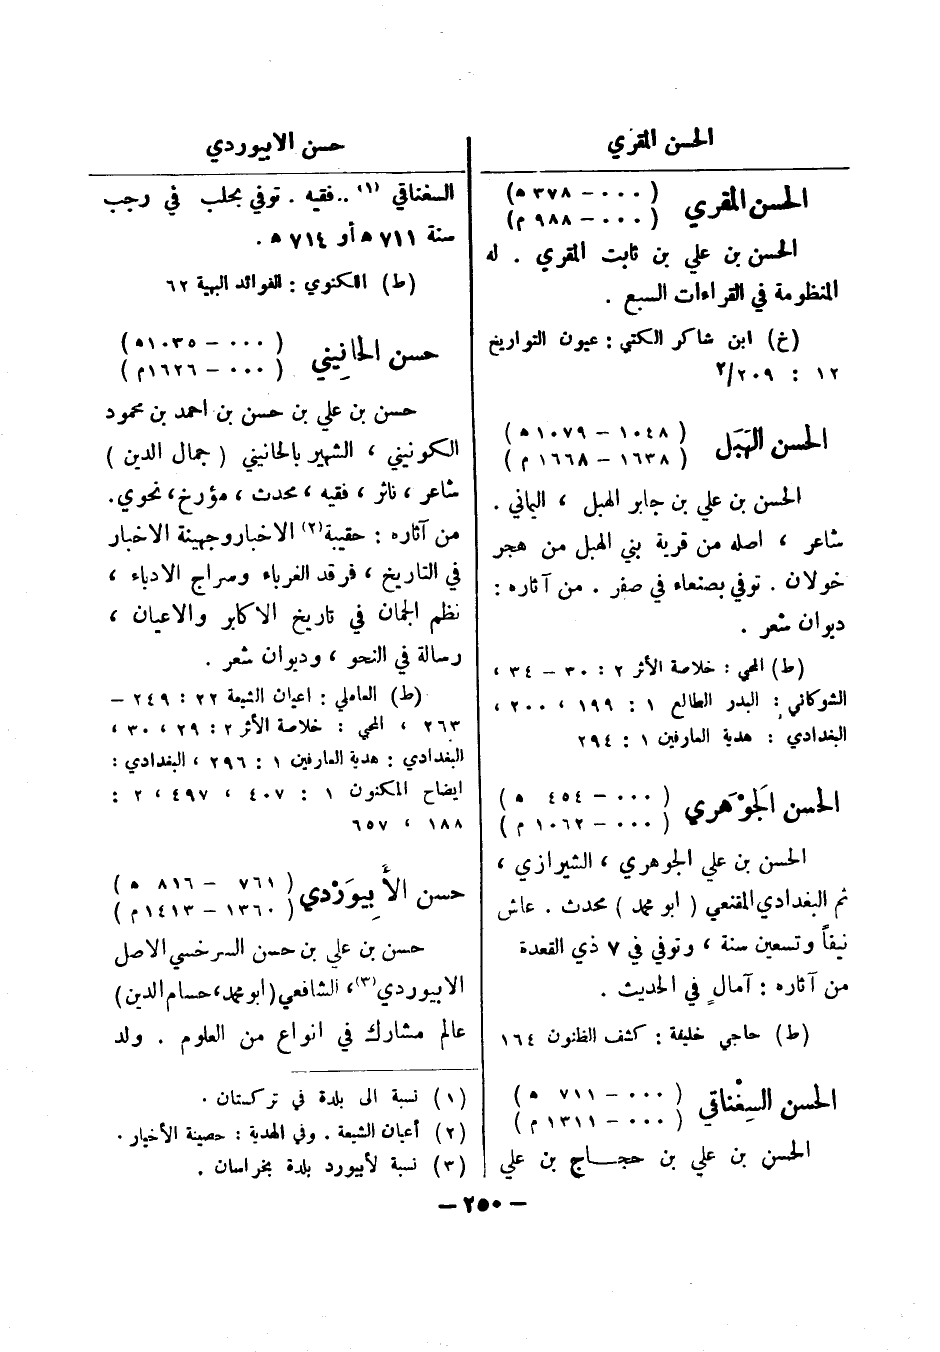 الحسن المقرَي
الحسن المقري ( ٠٠٠ – ٣٧٨ ه )
( ٠٠٠ – ٩٨٨ م )
الحسن بن علي بن ثابت المقري . له
المنظومة في القراءات السبع .
(خ) ابن شاكر الكتبي : عيون التواريخ
١٢ : ٢/٢٠٩
الحسن الهَبَل ( ١٠٤٨ – ١٠٧٩ ه )
( ١٦٣٨ – ١٦٦٨ م )
الحسن بن علي بن جابر الهبل ، اليماني .
شاعر ، اصله من قرية بني الهبل من هجر
خولان . توفي بصنعاء في صفر . من آثاره :
ديوان شعر .
(ط) المحبي : خلاصة الأثر ٢ : ٣٠ – ٣٤ ،
الشوكاني : البدر الطالع ١ : ١٩٩ ، ٢٠٠ ،
البغدادي : هدية العارفين ١ : ٢٩٤
الحسن الجَوْهَري ( ٠٠٠ – ٤٥٤ ه )
( ٠٠٠ – ١٠٦٢ م )
الحسن بن علي الجوهري ، الشيرازي ،
ثم البغدادي المقنعي ( أبو محمد ) محدث . عاش
نيفاً وتسعين سنة ، وتوفي في ٧ ذي القعدة
من آثاره : آمالٍ في الحديث .
(ط) حاجي خليفة : كشف الظنون ١٦٤
الحسن السِغْناقي ( ٠٠٠ – ٧١١ ه )
( ٠٠٠ – ١٣١١ م )
الحسن بن علي بن حجاج بن علي
حسن الابيوردي
السغناقي (١) .. فقيه . توفي بحلب في رجب
سنة ٧١١ ه أو ٧١٤ ه .
(ط) اللكنوي : الفوائد البهية ٦٢
حسن الحانِيني ( ٠٠٠ – ١٠٣٥ ه )
( ٠٠٠ – ١٦٢٦ م )
حسن بن علي بن حسن بن احمد بن محمود
الكونيني ، الشهير بالحانيني ( جمال الدين )
شاعر ، ناثر ، فقيه ، محدث ، مؤرخ ، نحوي .
من آثاره : حقيبة (٢) الاخبار وجهينة الاخبار
في التاريخ ، فرقد الغرباء وسراج الادباء ،
نظم الجمان في تاريخ الاكابر والاعيان ،
رسالة في النحو ، وديوان شعر .
(ط) العاملي : اعيان الشيعة ٢٢ : ٢٤٩ –
٢٦٣ ، المحبي : خلاصة الأثر ٢ : ٢٩ ، ٣٠ ،
البغدادي : هدية العارفين ١ : ٢٩٦ ، البغدادي :
ايضاح المكنون ١ : ٤٠٧ ، ٤٩٧ ، ٢ :
١٨٨ ، ٦٥٧
حسن الأَبِيوَرْدي ( ٧٦١ – ٨١٦ ه )
( ١٣٦٠ – ١٤١٣ م )
حسن بن علي بن حسن السرخسي الاصل
الابيوردي (٣) ، الشافعي ( ابو محمد ، حسام الدين )
عالم مشارك في انواع من العلوم . ولد
(١) نسبة الى بلدة في تركستان .
(٢) أعيان الشيعة . وفي الهدية : حصينة الأخيار .
(٣) نسبة لأبيورد بلدة بخراسان .
– ٢٥٠ –